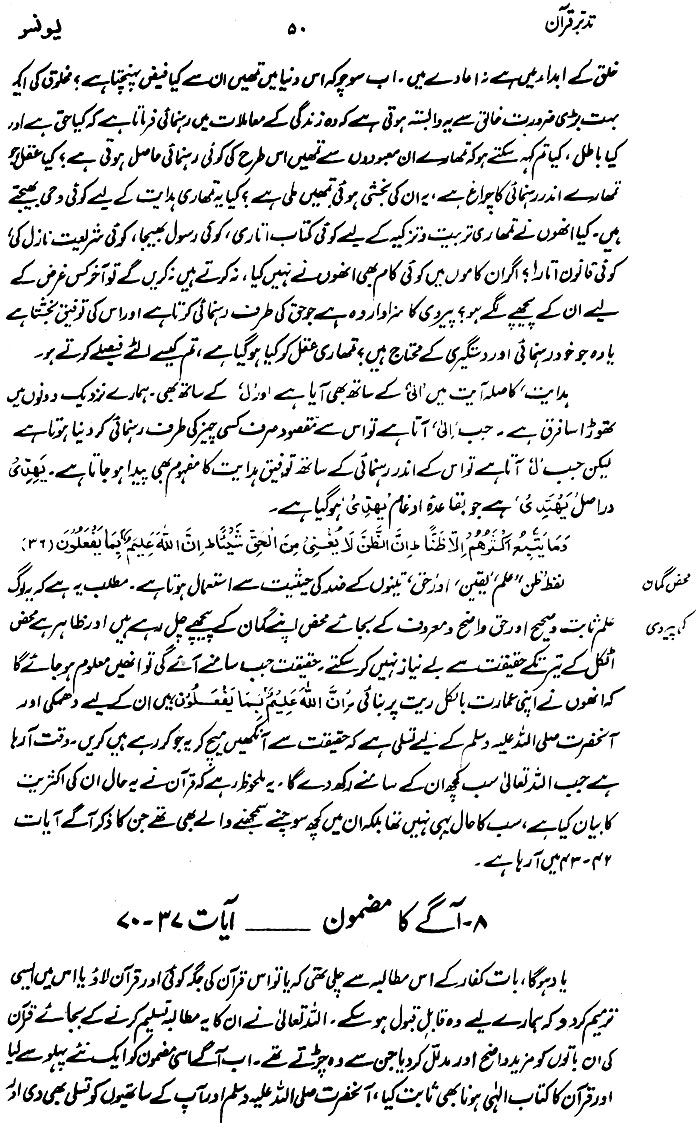 تدبر قرآن ۵۰ یونس
خلق کے ابداء میں ہے نہ اعادے میں۔ اب سوچو کہ اس دنیا میں تمھیں ان سے کیا فیض پہنچتا ہے؟ مخلوق کی ایک
بہت بڑی ضرورت خالق سے یہ وابستہ ہوتی ہے کہ وہ زندگی کے معاملات میں رہنمائی فرماتا ہے کہ کیا حق ہے اور
کیا باطل، کیا تم کہہ سکتے ہو کہ تمھارے ان معبودوں سے تمھیں اس طرح کی کوئی رہنمائی حاصل ہوتی ہے؟ کیا عقل جو
تمھارے اندر رہنمائی کا چراغ ہے، یہ ان کی بخشی ہوئی تمھیں ملی ہے؟ کیا یہ تمھاری ہدایت کے لیے کوئی وحی بھیجتے
ہیں۔ کیا انھوں نے تمھاری تربیت و تزکیہ کے لیے کوئی کتاب اتاری، کوئی رسول بھیجا، کوئی شریعت نازل کی،
کوئی قانون اتارا؟ اگر ان کاموں میں کوئی کام بھی انھوں نے نہیں کیا، نہ کرتے ہیں نہ کریں گے تو آخر کس غرض کے
لیے ان کے پیچھے لگے ہو؟ پیروی کا سزاوار وہ ہے جو حق کی طرف رہنمائی کرتا ہے اور اس کی توفیق بخشتا ہے
یا وہ جو خود رہنمائی اور دستگیری کے محتاج ہیں؟ تمھاری عقل کو کیا ہو گیا ہے، تم کیسے الٹے فیصلے کرتے ہو۔
'ہدایت' کا صلہ آیت میں 'الیٰ' کے ساتھ بھی آیا ہے اور 'ل' کے ساتھ بھی۔ ہمارے نزدیک دونوں میں
تھوڑا سا فرق ہے۔ جب 'الیٰ' آتا ہے تو اس سے مقصود صرف کسی چیز کی طرف رہنمائی کر دینا ہوتا ہے
لیکن جب 'ل' آتا ہے تو اس کے اندر رہنمائی کے ساتھ توفیق ہدایت کا مفہوم بھی پیدا ہو جاتا ہے۔ یَھِدِّیْ
دراصل 'یَھْتَدِیْ' ہے جو بقاعدہ ادغام 'یھدّی' ہو گیا ہے۔
وَمَا يَتَّبِعُ اَكْثَرُهُمْ اِلَّا ظَنًّا ۭ اِنَّ الظَّنَّ لَا يُغْنِيْ مِنَ الْحَقِّ شَيْئًا ۭ اِنَّ اللّٰهَ عَلِيْمٌۢ بِمَا يَفْعَلُوْنَ (۳۶)
محض گمان
کی پیروی
لفظ 'ظن' 'علم' 'یقین' اور 'حق' تینوں کے ضد کی حیثیت سے استعمال ہوتا ہے۔ مطلب یہ ہے کہ یہ لوگ
علم ثابت و صحیح اور حق واضح و معروف کے بجائے محض اپنے گمان کے پیچھے چل رہے ہیں اور ظاہر ہے محض
اٹکل کے تیر تکے حقیقت سے بے نیاز نہیں کر سکتے۔ حقیقت جب سامنے آئے گی تو انھیں معلوم ہو جائے گا
کہ انھوں نے اپنی عمارت بالکل ریت پر بنائی۔ اِنَّ اللّٰهَ عَلِيْمٌۢ بِمَا يَفْعَلُوْنَ میں ان کے لیے دھمکی اور
آنحضرت صلی اللہ علیہ وسلم کے لیے تسلی ہے کہ حقیقت سے آنکھیں میچ کر یہ جو کر رہے ہیں کریں۔ وقت آ رہا
ہے جب اللہ تعالیٰ سب کچھ ان کے سامنے رکھ دے گا۔ یہ ملحوظ رہے کہ قرآن نے یہ حال ان کی اکثریت
کا بیان کیا ہے، سب کا حال یہی نہیں تھا بلکہ ان میں کچھ سوچنے سمجھنے والے بھی تھے جن کا ذکر آگے آیات
۴۲-۴۳ میں آ رہا ہے۔
۸- آگے کا مضمون ــــــ آیات ۳۷-۷۰
یاد ہوگا، بات کفار کے اس مطالبہ سے چلی تھی کہ یا تو اس قرآن کی جگہ کوئی اور قرآن لاؤ یا اس میں ایسی
ترمیم کر دو کہ ہمارے لیے وہ قابل قبول ہو سکے۔ اللہ تعالیٰ نے ان کا یہ مطالبہ تسلیم کرنے کے بجائے قرآن
کی ان باتوں کو مزید واضح اور مدلل کر دیا جن سے وہ چڑتے تھے۔ اب آگے اسی مضمون کو ایک نئے پہلو سے لیا
اور قرآن کا کتاب الٰہی ہونا بھی ثابت کیا، آنحضرت صلی اللہ علیہ وسلم اور آپ کے ساتھیوں کو تسلی بھی دی اور